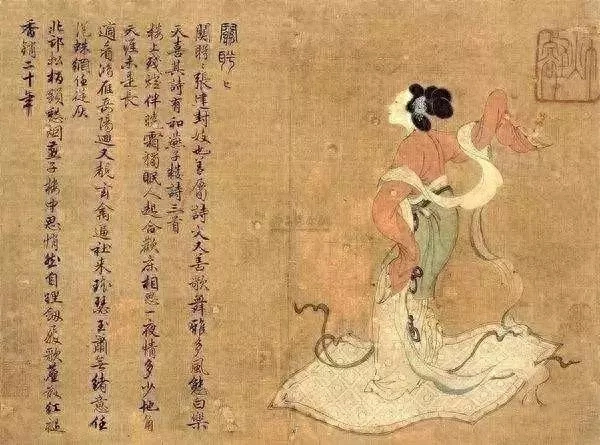 關盼〻
關盼〻張建封妓也善屬詩文又善歌舞雅多風態白樂
天喜其詩有和燕子樓詩三首
樓上殘燈伴曉霜獨眠人起合歡床相思一夜情多少地角
天涯未是長
適看鴻雁岳陽迴又覩玄禽逼社來瑤瑟玉簫無緒意任
從蛛網任從灰
北邙松柏鎖愁烟燕子樓中思悄然自理劍履歌塵散紅褪
香銷二十年